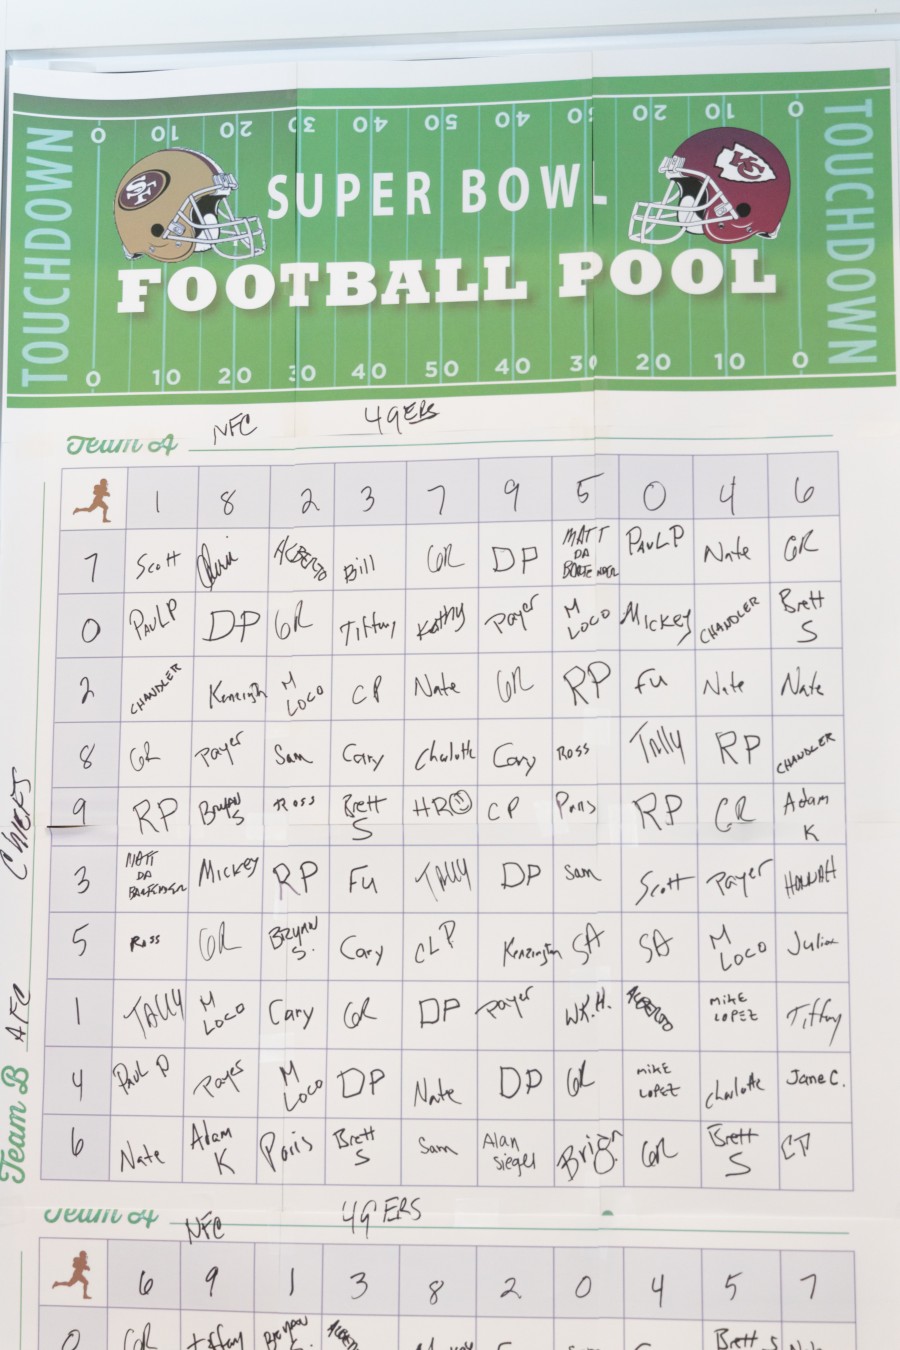 0 10 20 30 40 50 40 30 20 10 0
TOUCHDOWN
SF
KC
TOUCHDOWN
SUPER BOWL
FOOTBALL POOL
0 10 20 30 40 50 40 30 20 10 0
Team A NFC 49ERS
1 8 2 3 7 9 5 0 4 6
7 Scott ALBERTO Bill GR DP MATT DA BARTENDER PAUL P Nate GR
0 PAUL P DP GR Tiffany Kathy Payer M LOCO Mickey CHANDLER Brett S
2 CHANDLER Kensington M LOCO CP Nate GR RP FU Nate Nate
8 GR Payer Sam Cary Charlotte Cary Ross TALLY RP CHANDLER
9 RP Bryan S Ross Brett S HR CP Paris RP GR Adam K
3 MATT DA BARTENDER Mickey RP FU TALLY DP Sam Scott Payer HANNAH
5 Ross GR BRYAN S. Cary CLP Kensington SA SA M LOCO Julian
1 TALLY M LOCO Cary GR DP Payer W.K.H. ALBERTO MIKE LOPEZ Tiffany
4 PAUL P Payer M LOCO DP Nate DP GR MIKE LOPEZ Charlotte Jane C.
6 Nate Adam K Paris Brett S Sam Alan Siegel Brig GR Brett S CP
Team B AFC Chiefs
Team A NFC 49ERS
6 9 1 3 8 2 0 4 5 7
0 GR Tiffany Bryan S. Brett S